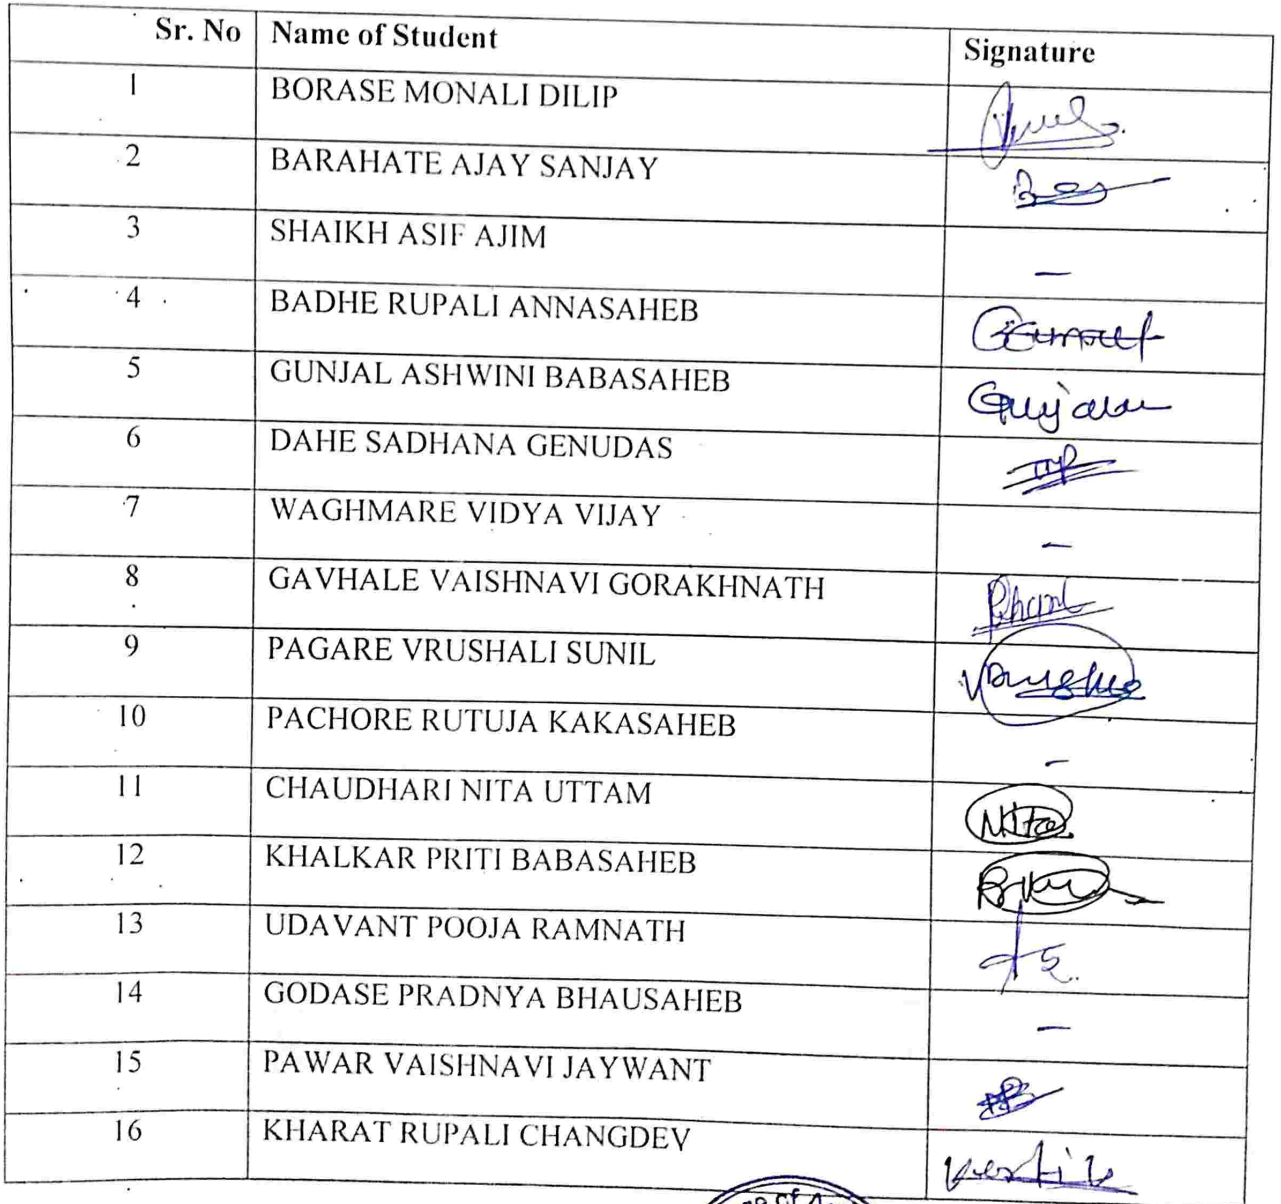 Sr. No Name of Student Signature
1 BORASE MONALI DILIP
2 BARAHATE AJAY SANJAY
3 SHAIKH ASIF AJIM –
4 BADHE RUPALI ANNASAHEB
5 GUNJAL ASHWINI BABASAHEB
6 DAHE SADHANA GENUDAS
7 WAGHMARE VIDYA VIJAY –
8 GAVHALE VAISHNAVI GORAKHNATH
9 PAGARE VRUSHALI SUNIL
10 PACHORE RUTUJA KAKASAHEB –
11 CHAUDHARI NITA UTTAM
12 KHALKAR PRITI BABASAHEB
13 UDAVANT POOJA RAMNATH
14 GODASE PRADNYA BHAUSAHEB –
15 PAWAR VAISHNAVI JAYWANT
16 KHARAT RUPALI CHANGDEV
of